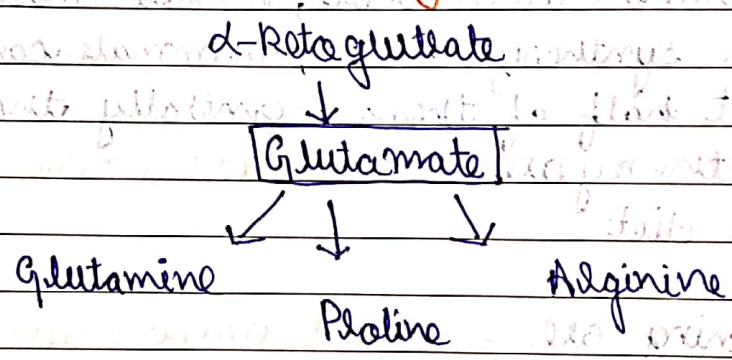 α-Ketogluterate
Glutamate
Glutamine
Proline
Arginine